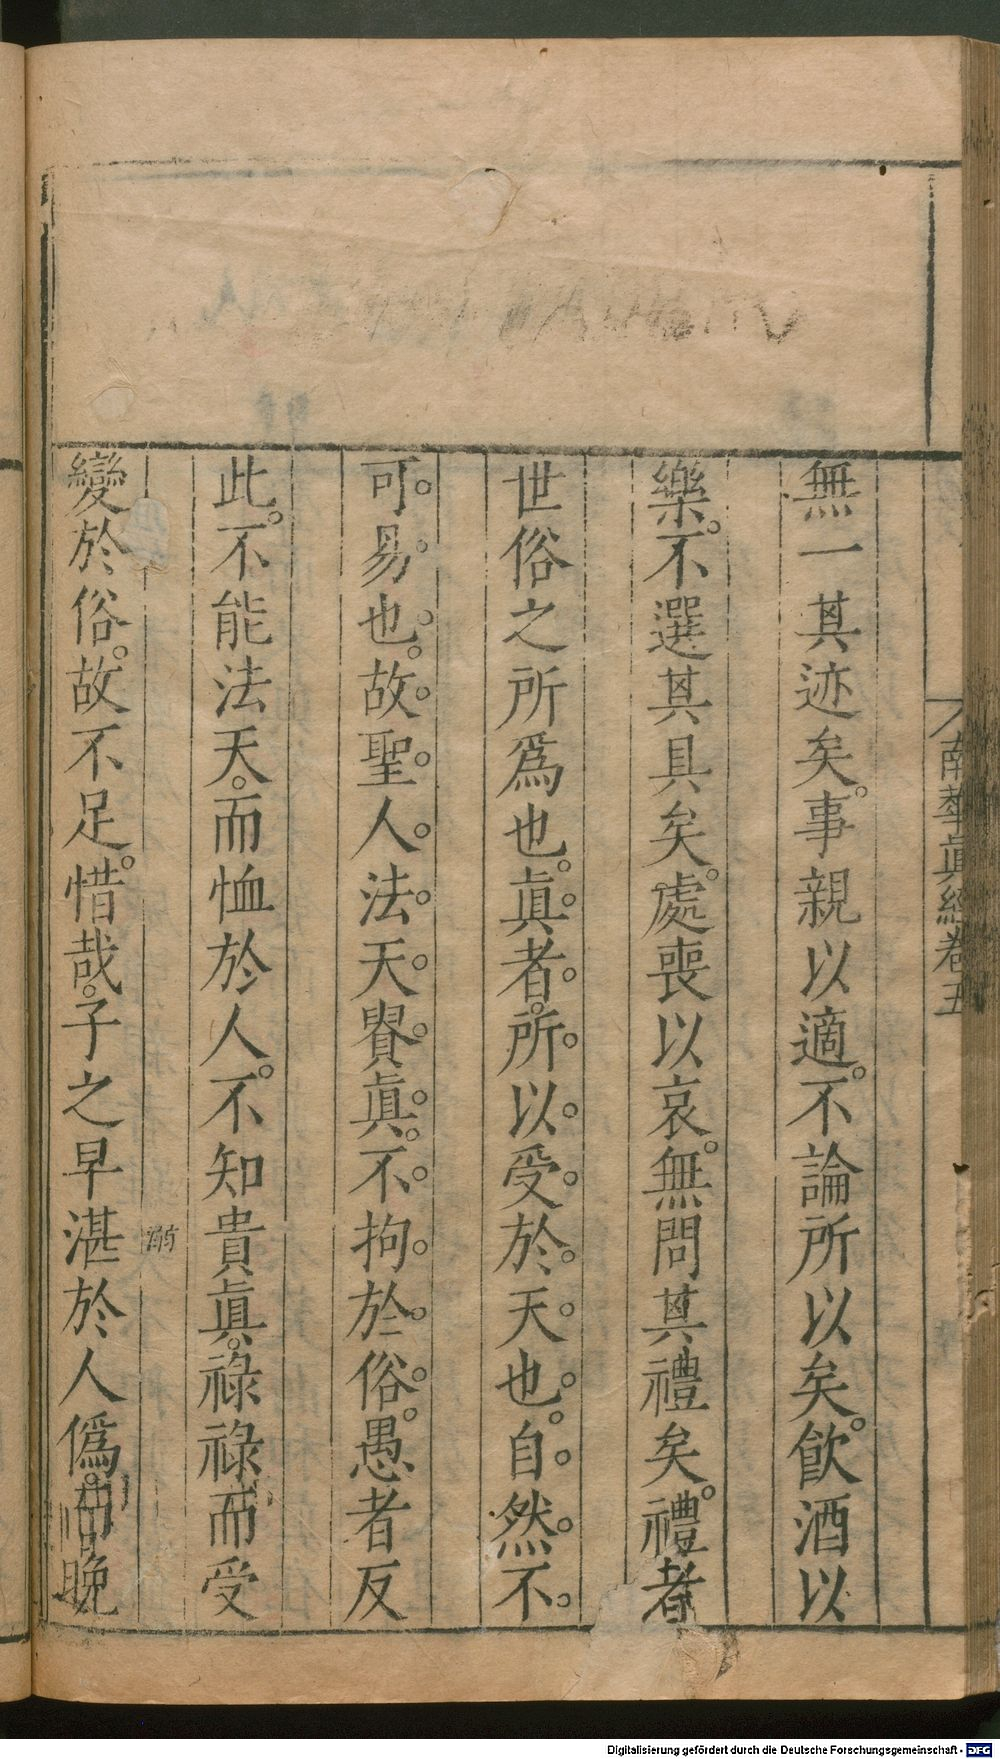 南華眞經卷五
無一其迹矣。事親以適。不論所以矣。飮酒以
樂。不選其具矣。處喪以哀。無問其禮矣。禮者
世俗之所爲也。眞者。所以受於天也。自然不
可易也。故聖人法天貴眞。不拘於俗。愚者反
此。不能法天。而恤於人。不知貴眞。祿祿而受
變於俗。故不足。惜哉。子之早湛於人僞。而晩
Digitalisierung gefördert durch die Deutsche Forschungsgemeinschaft - DFG